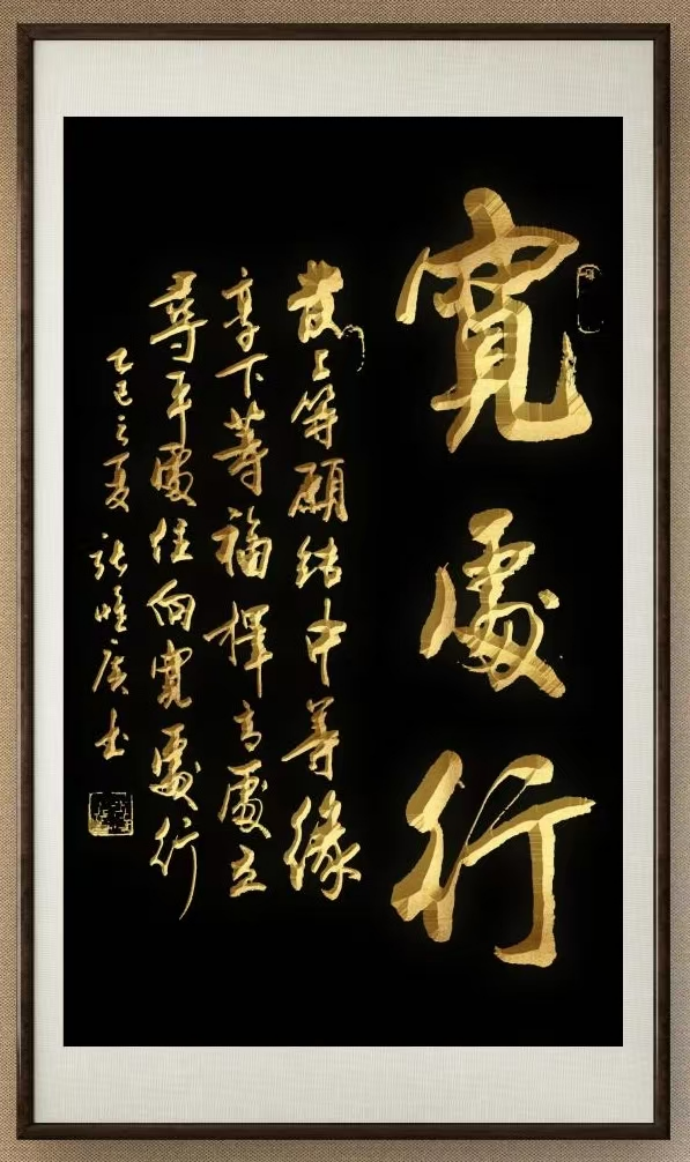 寬處行
發上等願結中等緣
享下等福擇高處立
尋平處住向寬處行
乙巳之夏 張唯廣書